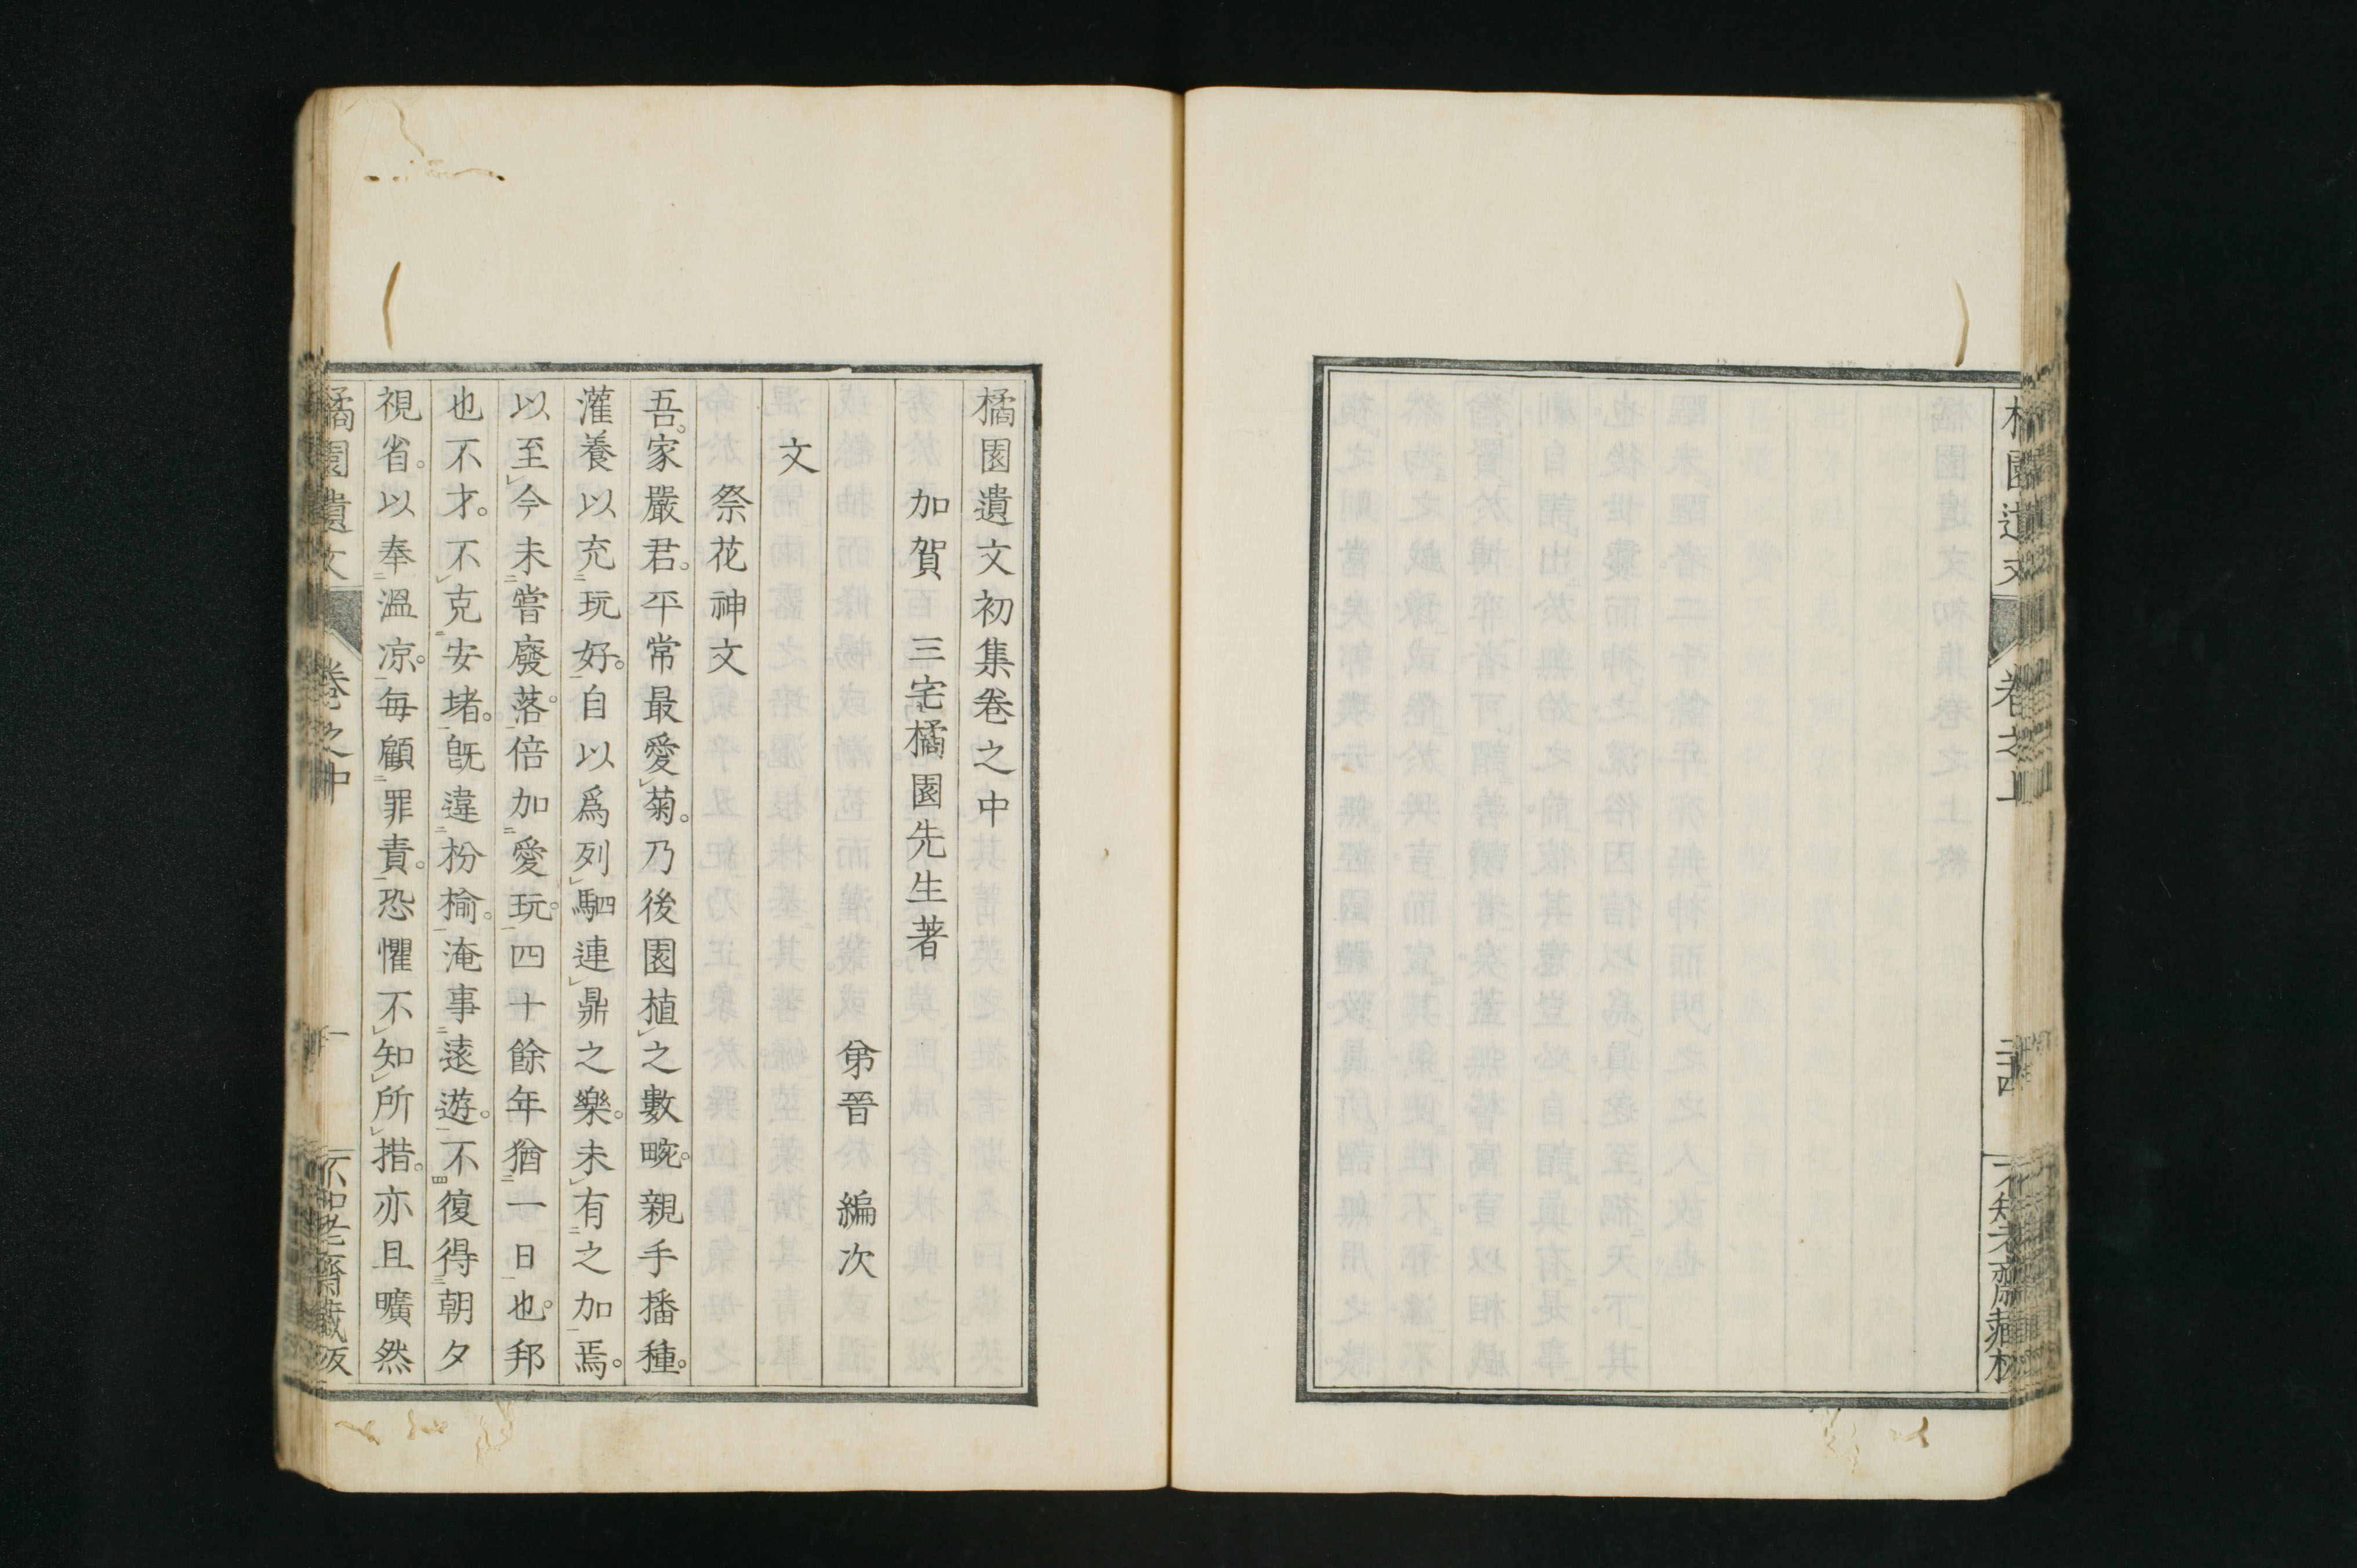 橘園遺文 卷之上 二十四 不知老齋藏板
橘園遺文初集卷之中
加賀 三宅橘園先生著
弟晉 編次
文
祭花神文
吾家嚴君。平常最愛菊。乃後園植之數畹。親手播種。
灌養以充玩好。自以爲列駟連鼎之樂。未有之加焉。
以至今未嘗廢落。倍加愛玩。四十餘年猶一日也。邦
也不才。不克安堵。既違枌榆。淹事遠遊。不復得朝夕
視省。以奉溫凉。每顧罪責。恐懼不知所措。亦且曠然
橘園遺文 卷之中 一 不知老齋藏板